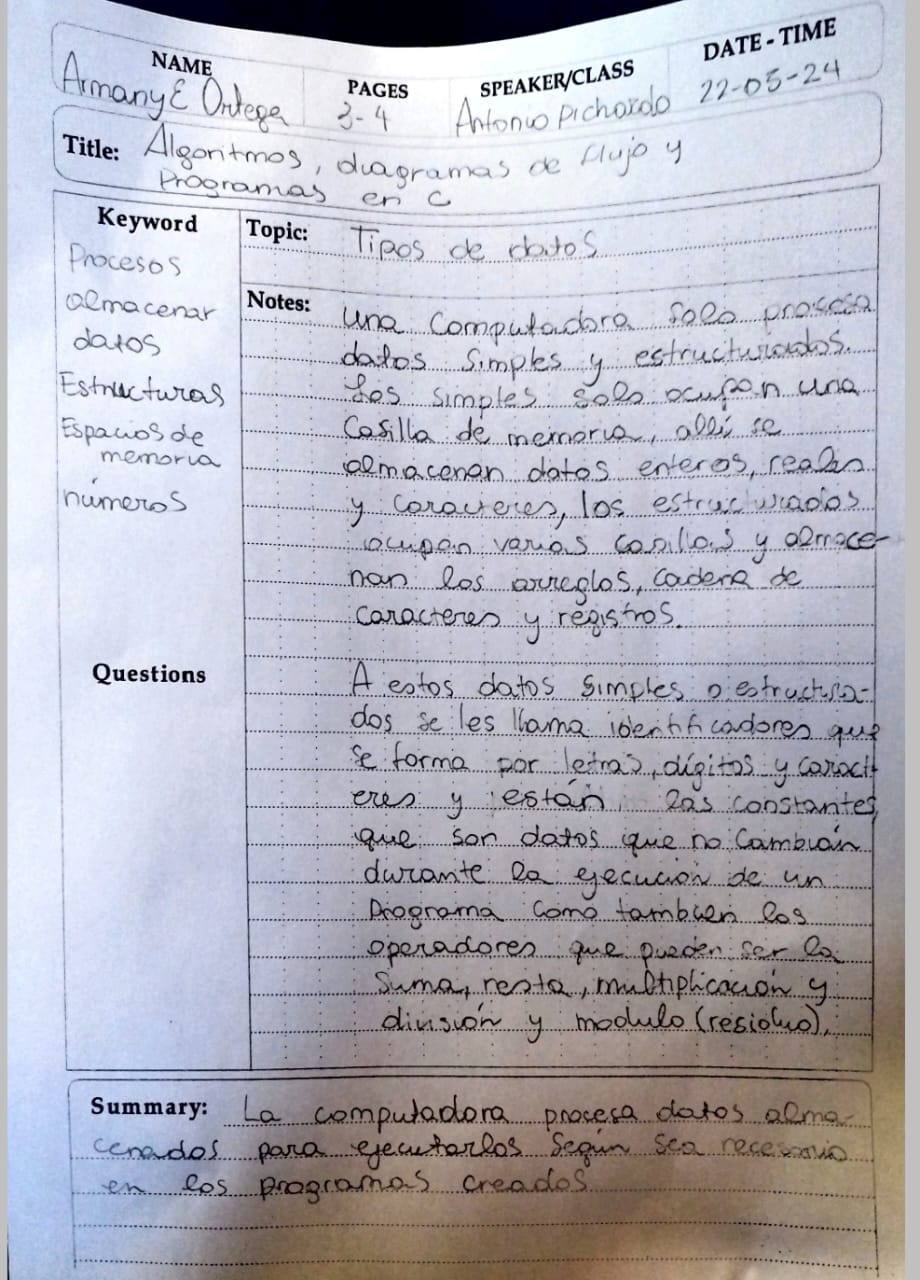 NAME PAGES SPEAKER/CLASS DATE - TIME
Armany E Ortega 3-4 Antonio Pichardo 22-05-24
Title: Algoritmos, diagramas de flujo y
Programas en C
Keyword
Procesos
almacenar
datos
Estructuras
Espacios de
memoria
números
Questions
Topic: Tipos de datos
Notes: Una Computadora solo procesa
datos simples y estructurados.
Los simples solo ocupan una
Casilla de memoria, allí se
almacenan datos enteros, reales
y caracteres, los estructurados
ocupan varias casillas y almace-
nan los arreglos, cadena de
caracteres y registros.
A estos datos simples o estructura-
dos se les llama identificadores que
se forma por letras, dígitos y caract
eres y están las constantes
que son datos que no Cambian
durante la ejecución de un
Programa como tambien los
operadores que pueden ser la
Suma, resta, multiplicación y
división y modulo (residuo).
Summary: La computadora procesa datos alma-
cenados para ejecutarlos Según Sea necesario
en los programas creados